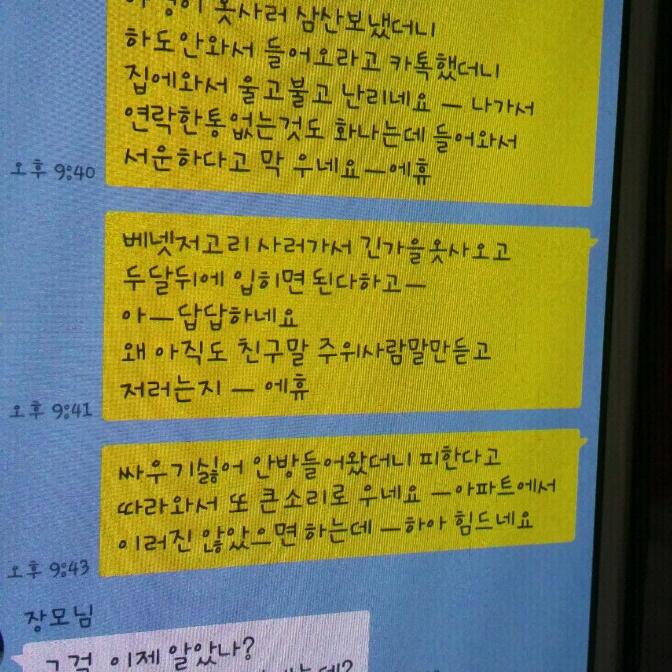 옷사러 삼산보냈더니
하도안와서 들어오라고 카톡했더니
집에와서 울고불고 난리네요 ㅡ 나가서
연락한통없는것도 화나는데 들어와서
서운하다고 막 우네요ㅡ에휴
오후 9:40
베넷저고리사러가서 긴가을옷사오고
두달뒤에 입히면 된다하고ㅡ
아ㅡ답답하네요
왜 아직도 친구말 주위사람말만듣고
저러는지 ㅡ 에휴
오후 9:41
싸우기싫어 안방들어왔더니 피한다고
따라와서 또 큰소리로 우네요 ㅡ아파트에서
이러진 않았으면 하는데 ㅡ하아 힘드네요
오후 9:43
장모님
그걸 이제 알았나?